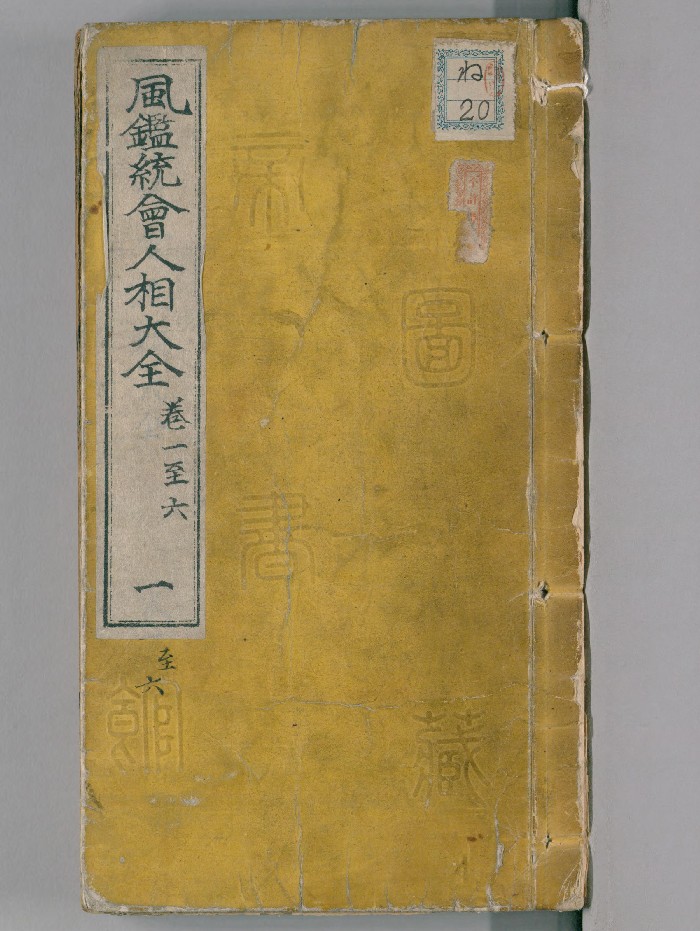 風鑑統會人相大全
卷一至六
一
至六
ね
20
圖
書
藏